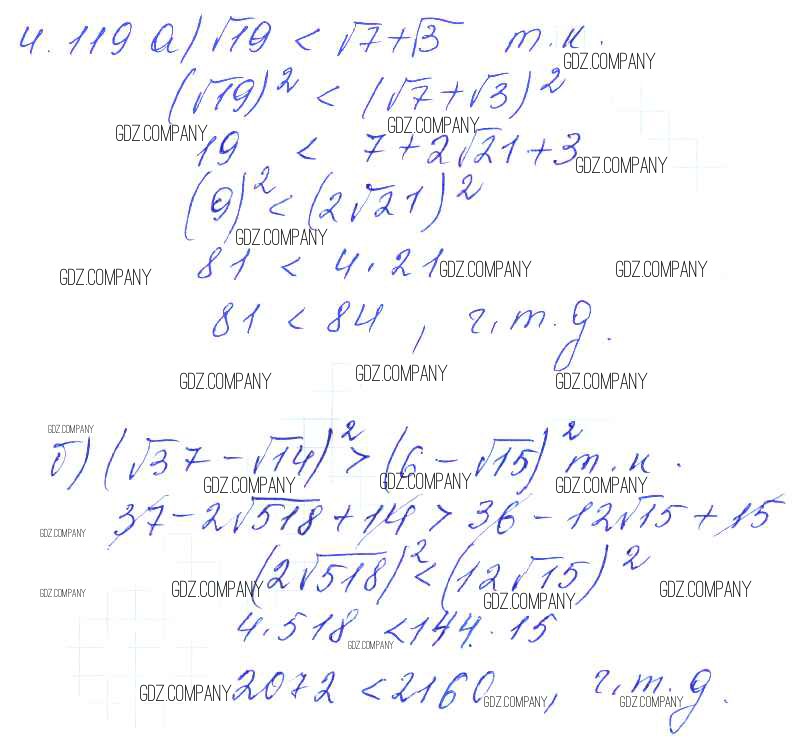 4.119 а) √19 < √7+√3 т.к.
GDZ.COMPANY
(√19)² < (√7+√3)²
GDZ.COMPANY GDZ.COMPANY
19 < 7+2√21+3
GDZ.COMPANY
(9)² < (2√21)²
GDZ.COMPANY
81 < 4·21
GDZ.COMPANY GDZ.COMPANY GDZ.COMPANY
81 < 84, ч.т.д.
GDZ.COMPANY GDZ.COMPANY GDZ.COMPANY
GDZ.COMPANY
б) (√37 - √14)² > (6 - √15)² т.к.
GDZ.COMPANY GDZ.COMPANY GDZ.COMPANY
37 - 2√518 + 14 > 36 - 12√15 + 15
GDZ.COMPANY
(2√518)² < (12√15)²
GDZ.COMPANY GDZ.COMPANY GDZ.COMPANY GDZ.COMPANY
4·518 < 144·15
GDZ.COMPANY
2072 < 2160, ч.т.д.
GDZ.COMPANY GDZ.COMPANY GDZ.COMPANY